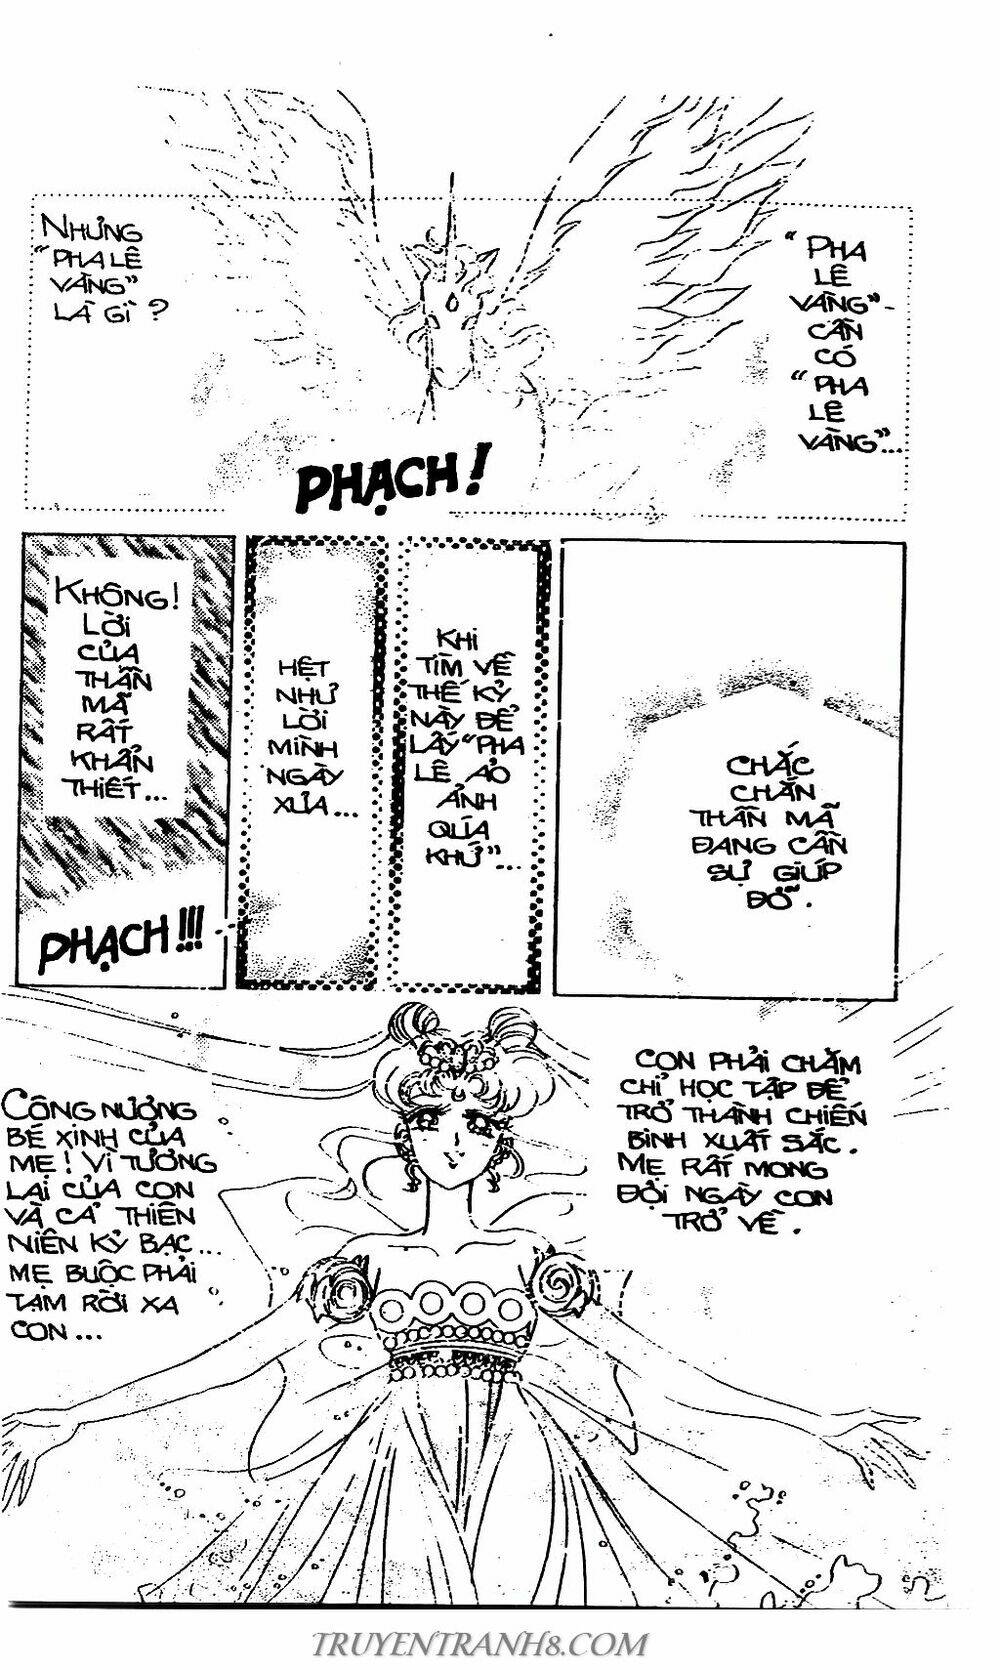 NHƯNG
"PHA LÊ
VÀNG"
LÀ GÌ?
"PHA
LÊ
VÀNG"-
CẦN
CÓ
"PHA
LÊ
VÀNG"...
PHẠCH!
KHÔNG!
LỜI
CỦA
THẦN
MÃ
RẤT
KHẨN
THIẾT...
PHẠCH!!!
HỆT
NHƯ
LỜI
MÌNH
NGÀY
XƯA...
KHI
TÌM VỀ
THẾ KỶ
NÀY ĐỂ
LẤY "PHA
LÊ ẢO
ẢNH
QÚA
KHỨ"...
CHẮC
CHẮN
THẦN MÃ
ĐANG CẦN
SỰ GIÚP
ĐỠ.
CÔNG NƯƠNG
BÉ XINH CỦA
MẸ! VÌ TƯƠNG
LAI CỦA CON
VÀ CẢ THIÊN
NIÊN KỶ BẠC...
MẸ BUỘC PHẢI
TẠM RỜI XA
CON...
CON PHẢI CHĂM
CHỈ HỌC TẬP ĐỂ
TRỞ THÀNH CHIẾN
BINH XUẤT SẮC.
MẸ RẤT MONG
ĐỢI NGÀY CON
TRỞ VỀ.
TRUYENTRANH8.COM